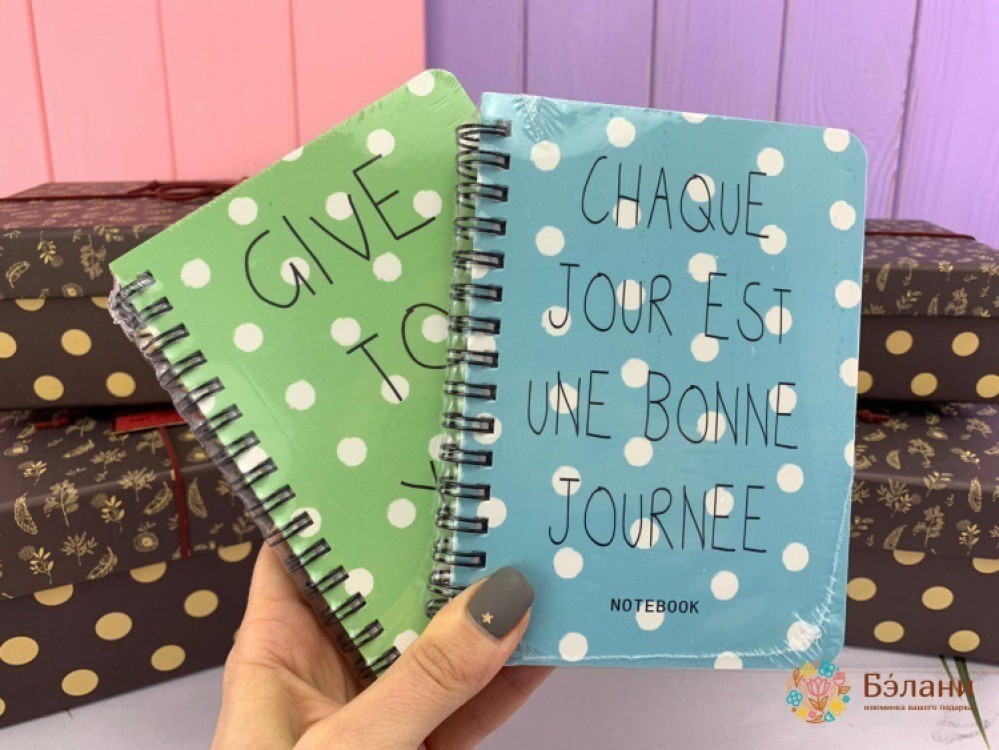 GIVE
TO
CHAQUE
JOUR EST
UNE BONNE
JOURNEE
NOTEBOOK
Бэ́лани
изюминка вашего подарка